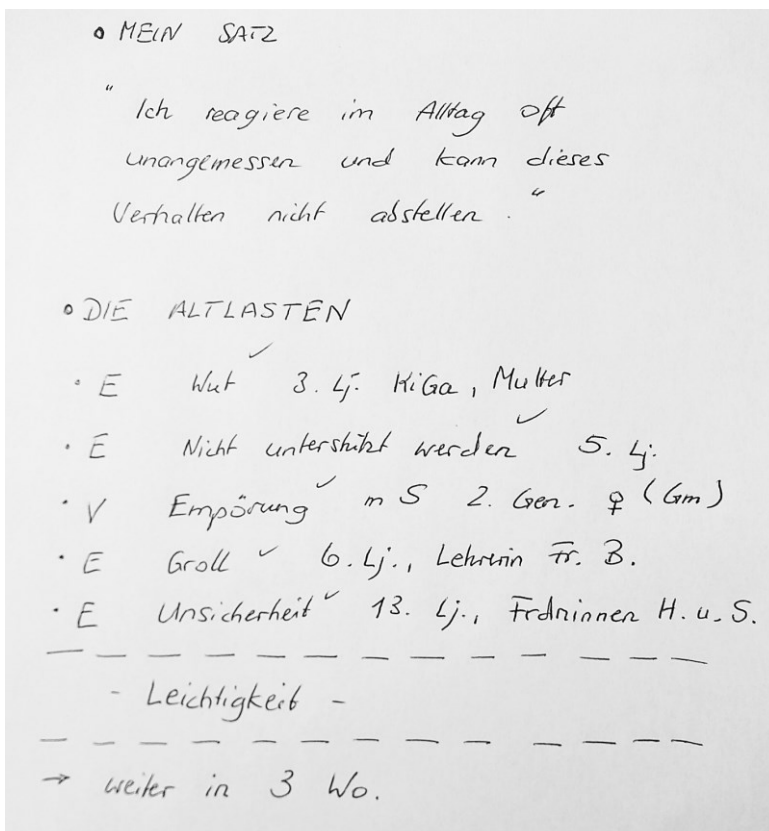 • MEIN SATZ
" Ich reagiere im Alltag oft
unangemessen und kann dieses
Verhalten nicht abstellen. "
• DIE ALTLASTEN
· E Wut ✓ 3. Lj. KiGa, Mutter
· E Nicht unterstützt werden ✓ 5. Lj.
· V Empörung ✓ m S 2. Gen. ♀ (Gm)
· E Groll ✓ 6. Lj., Lehrerin Fr. B.
· E Unsicherheit ✓ 13. Lj., Frdninnen H. u. S.
- Leichtigkeit -
→ weiter in 3 Wo.